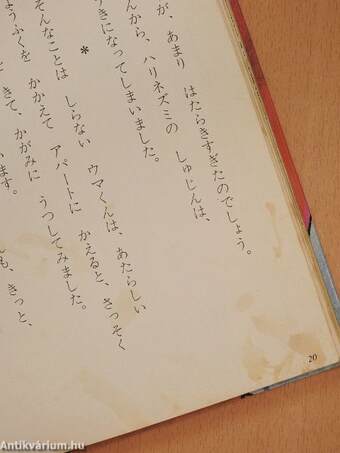 が、あまり　はたらきすぎたのでしょう。
んから、ハリネズミの　しゅじんは、
うきになってしまいました。
*
そんなことは　しらない　ウマくんは、あたらしい
ようふくを　かかえて　アパートに　かえると、さっそく
きて、かがみに　うつしてみました。
います。
も、きっと、
20
Antikvárium.hu